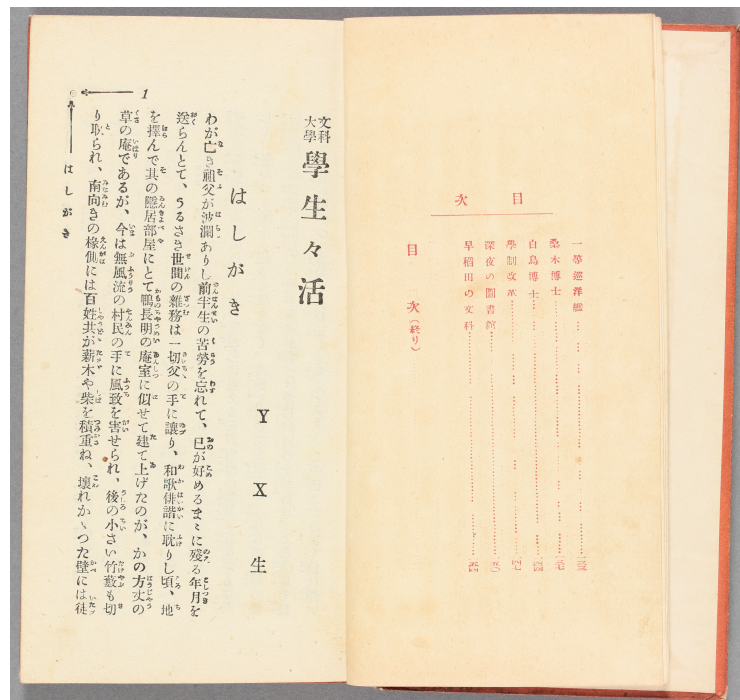 目次
一等巡洋艦
桑木博士
白鳥博士
學制改革
深夜の圖書館
早稻田の文科
目次(終り)
文科大學 學生々活
Y X 生
はしがき
わが亡き祖父が波瀾ありし前半生の苦勞を忘れて、己が好めるまゝに殘る年月を
送らんとて、うるさき世間の雜務は一切父の手に讓り、和歌俳諧に耽りし頃、地
を擇んで其の隱居部屋にとて鴨長明の庵室に似せて建て上げたのが、かの方丈の
草の庵であるが、今は無風流の村民の手に風致を害せられ、後の小さい竹藪も切
り取られ、南向きの椽側には百姓共が薪木や柴を積重ね、壞れかゝつた壁には徒
はしがき
1